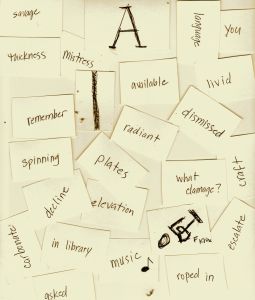 savage
A
language
you
thickness
mistress
I
available
livid
remember
radiant
dismissed
spinning
plates
what
damage?
craft
decline
elevation
escalate
carbonate
in library
music
roped in
asked